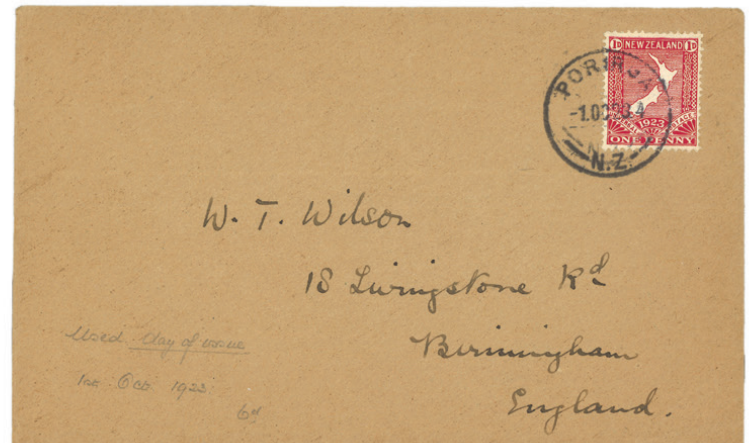 1D NEW ZEALAND 1D
1923
ONE PENNY
-1.OC
N.Z.
W. T. Wilson
18 Livingstone Rd
Birmingham
England.
Used day of issue
1st Oct 1923.
6d